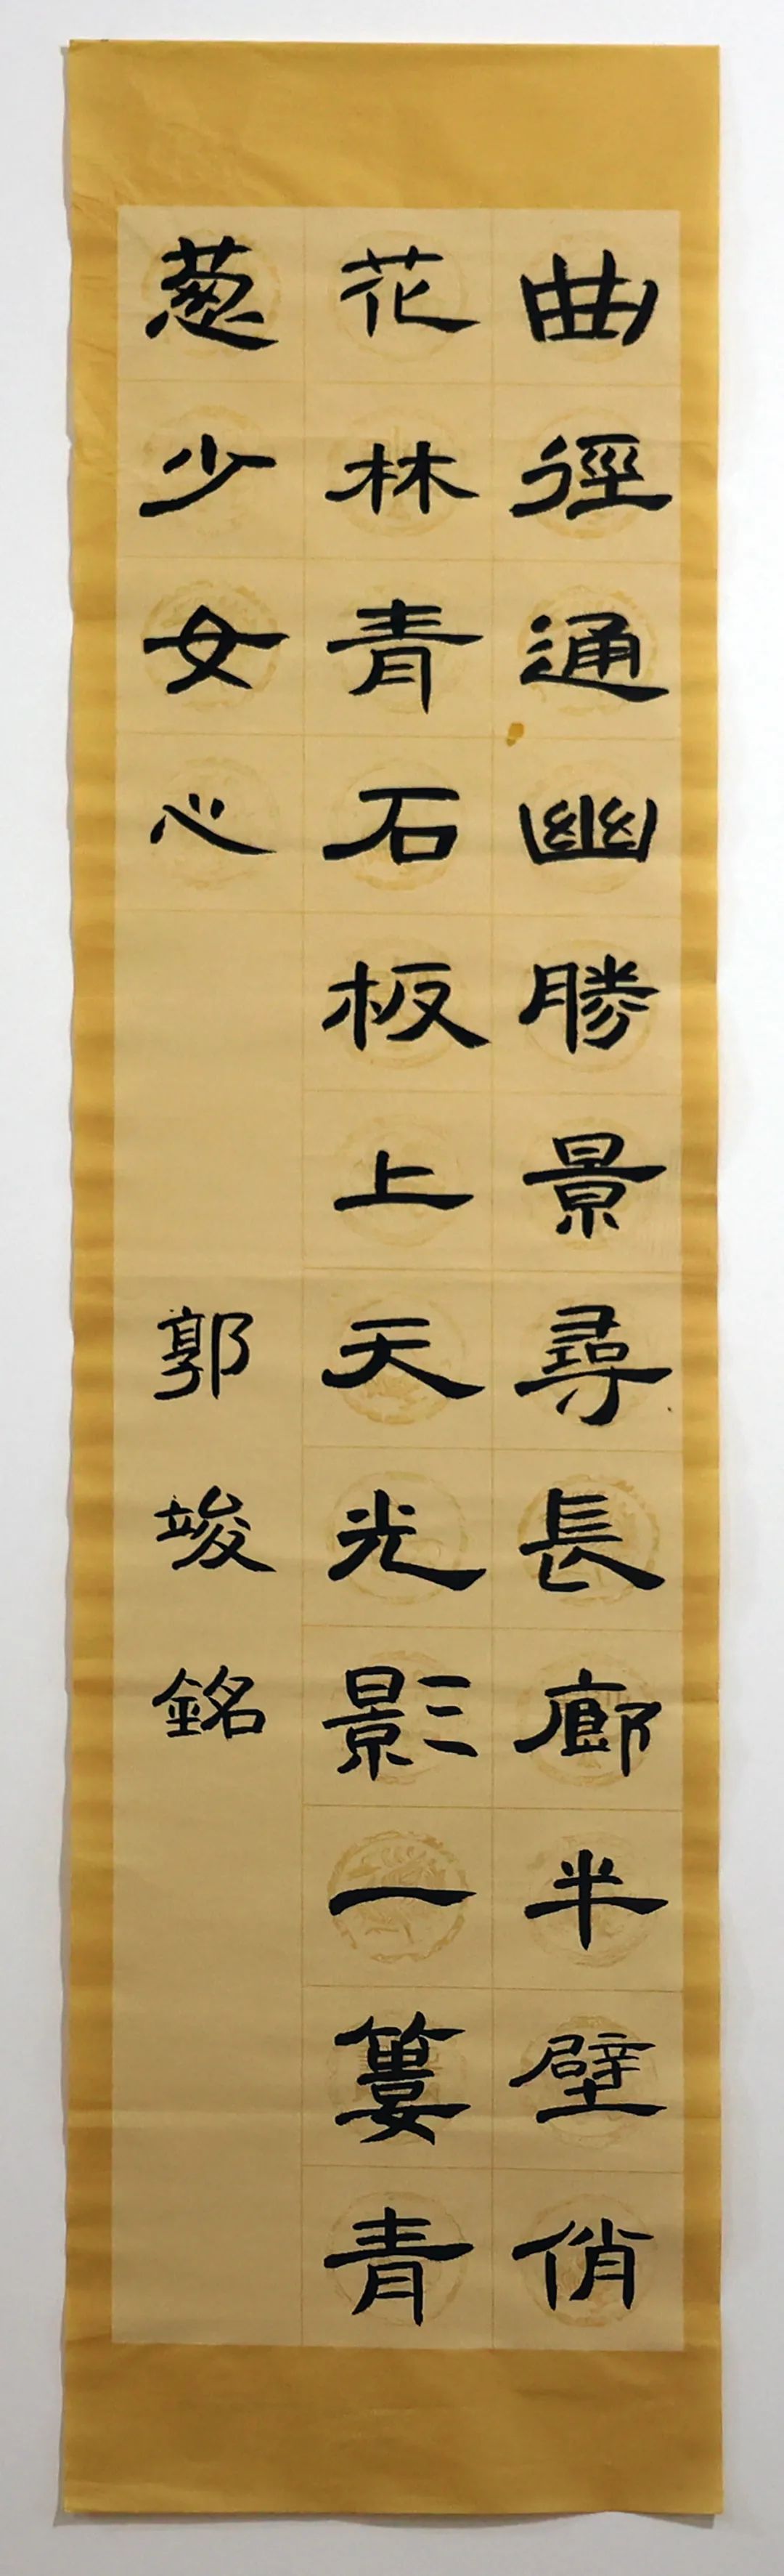 曲徑通幽勝景尋長廊半壁俏
花林青石板上天光影一簍青
葱少女心
郭竣銘